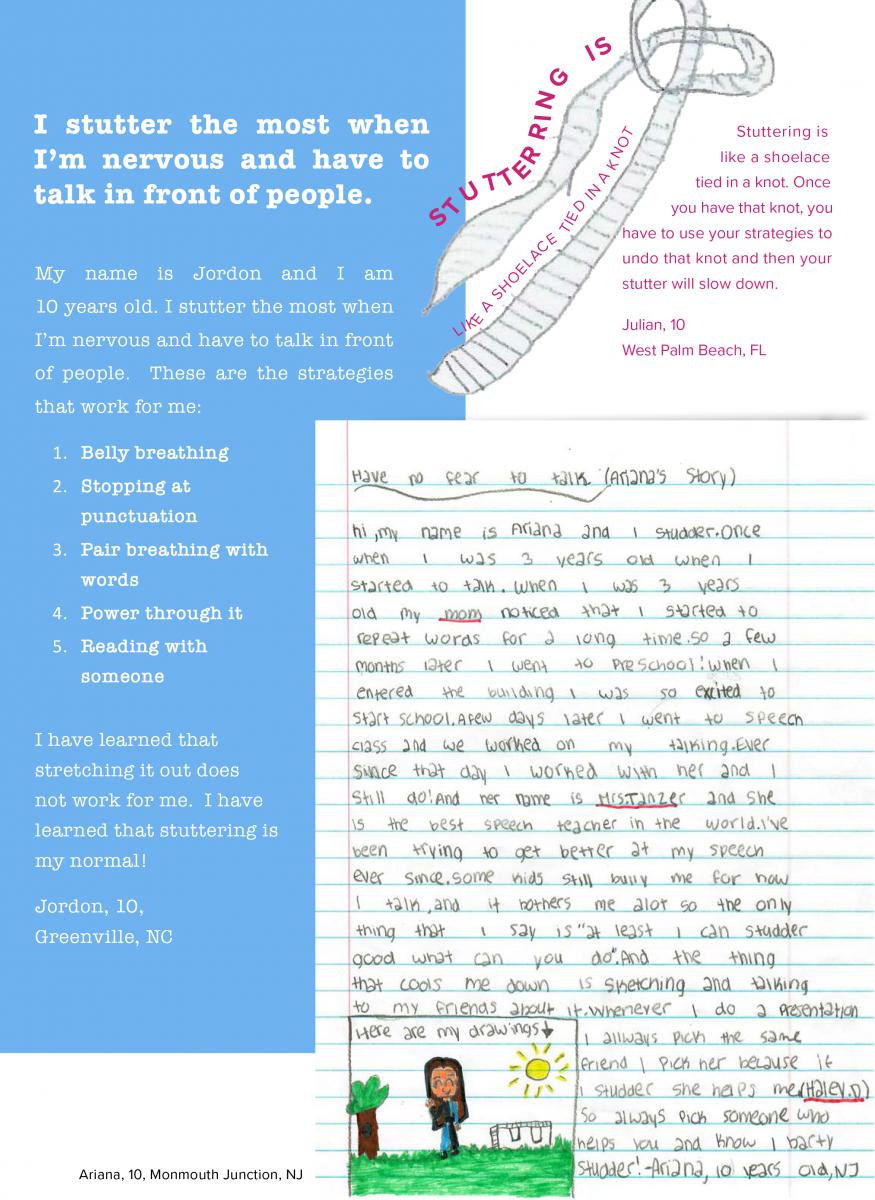 I stutter the most when
I’m nervous and have to
talk in front of people.
My name is Jordon and I am
10 years old. I stutter the most when
I’m nervous and have to talk in front
of people. These are the strategies
that work for me:
1. Belly breathing
2. Stopping at
punctuation
3. Pair breathing with
words
4. Power through it
5. Reading with
someone
I have learned that
stretching it out does
not work for me. I have
learned that stuttering is
my normal!
Jordon, 10,
Greenville, NC
STUTTERRING IS
LIKE A SHOELACE TIED IN A KNOT
Stuttering is
like a shoelace
tied in a knot. Once
you have that knot, you
have to use your strategies to
undo that knot and then your
stutter will slow down.
Julian, 10
West Palm Beach, FL
Have no fear to talk (Ariana's Story)
hi ,my name is Ariana and I studder.Once
when I was 3 years old when I
started to talk. when I was 3 years
old my mom noticed that I started to
repeat words for a long time.so a few
months later I went to Preschool!when I
entered the building I was so excited to
start school.Afew days later I went to speech
class and we worked on my talking.Ever
since that day I worked with her and I
still do!And her name is Mrs.Tanzer and she
is the best speech teacher in the world.I've
been trying to get better at my speech
ever since.some kids still bully me for how
I talk ,and it bothers me alot so the only
thing that I say is "at least I can studder
good what can you do".And the thing
that cools me down is sketching and talking
to my friends about it.whenever I do a Presentation
Here are my drawings↓
I allways pick the same
friend I pick her because if
I studder she helps me(Haley.D)
So always pick someone who
helps you and know I barty
studder!-Ariana, 10 years old,NJ
Ariana, 10, Monmouth Junction, NJ